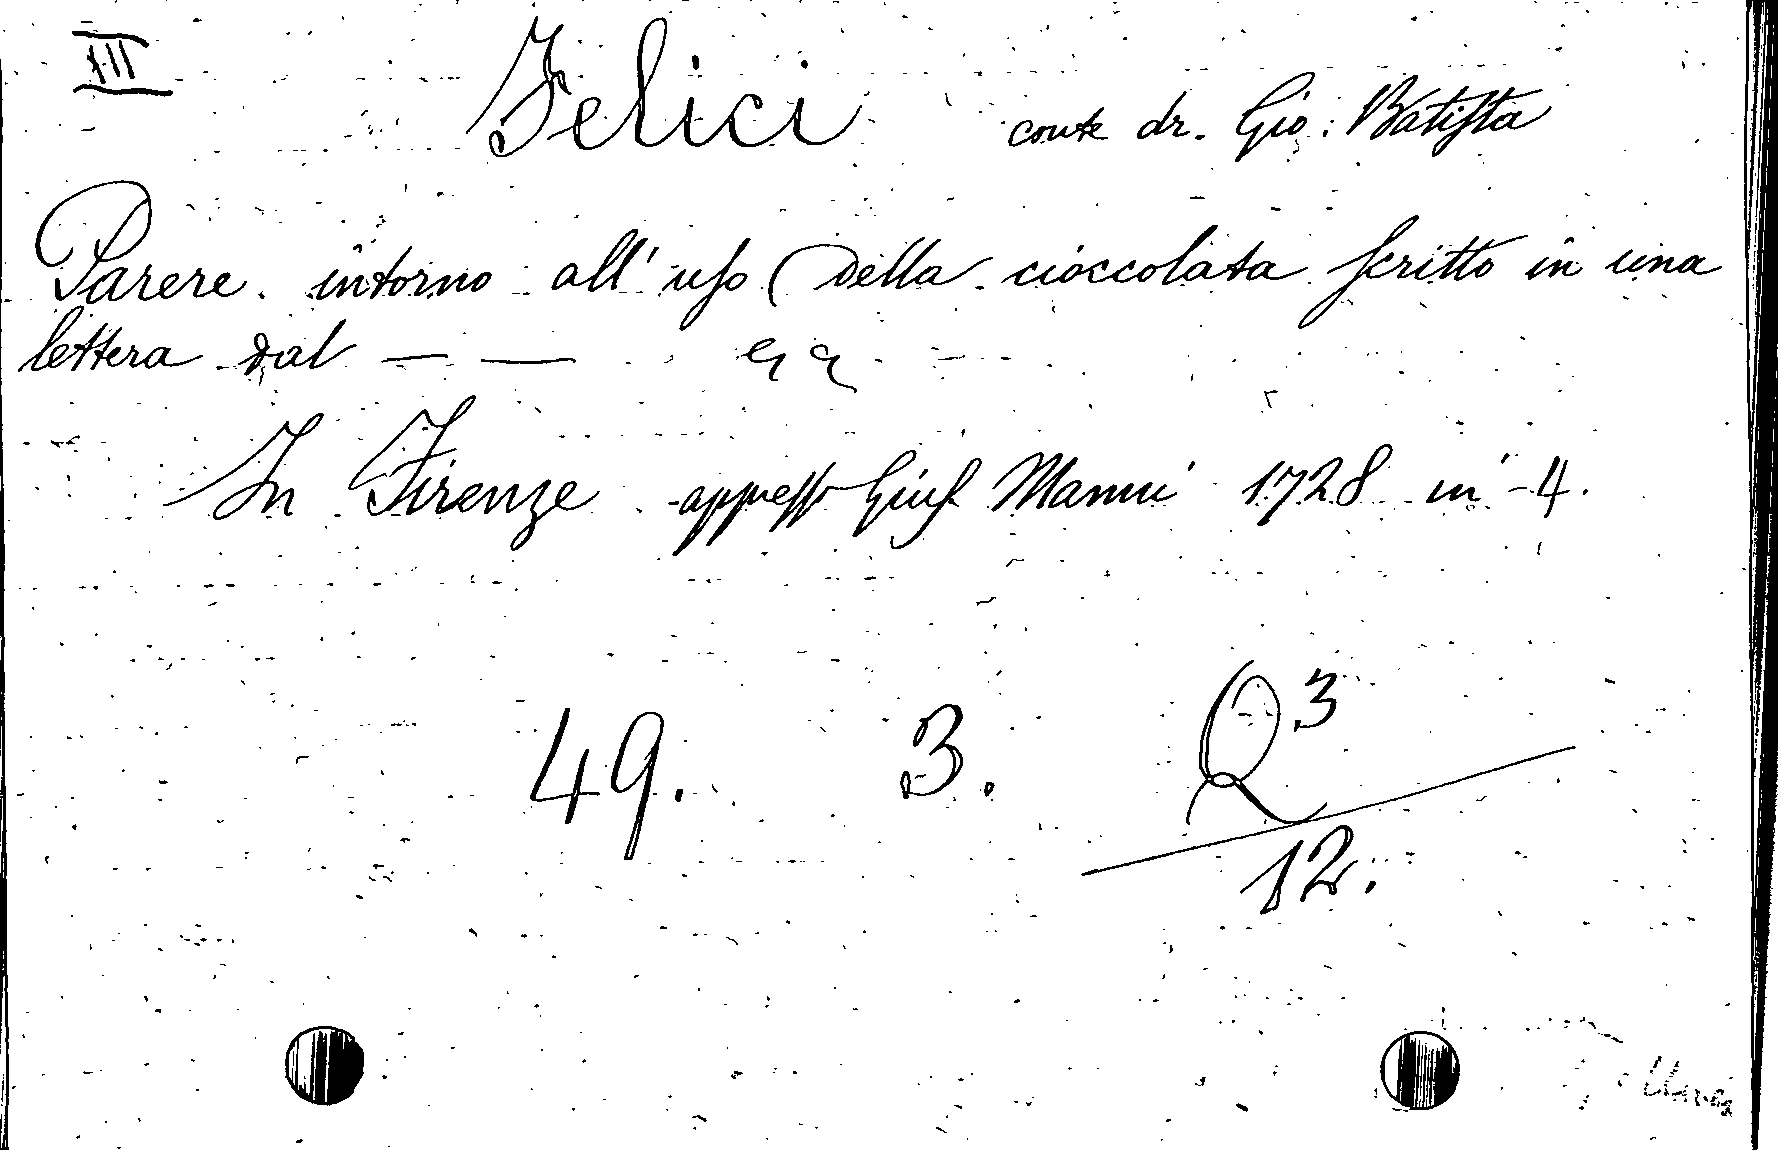 III
Felici conte dr. Gio: Batiſta
Parere intorno all' uſo della cioccolata ſcritto in una
lettera dal — —
In Firenze appreſſo Giuſ. Manni 1728 in 4.
49. 3. Q³
12.